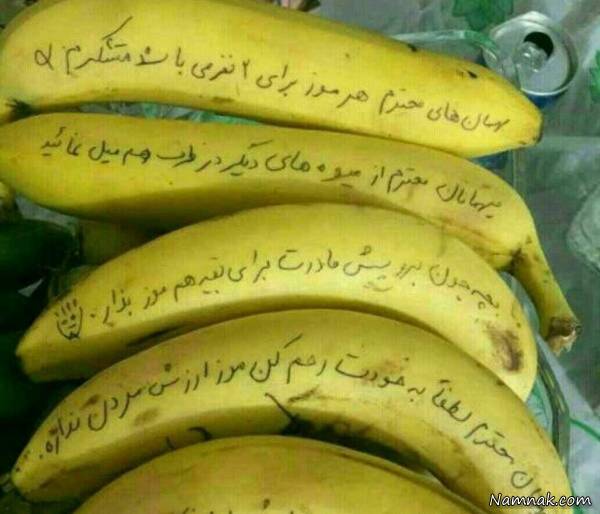 مهمان‌های محترم هر موز برای ۲ نفر می باشد متشکرم
میهمانان محترم از میوه های دیگر در ظرف هم میل نمائید
بچه جون برو پیش مادرت برای بقیه هم موز بذار.
محترم لطفاً به خودت رحم کن موز ارزش مردن نداره.
Namnak.com